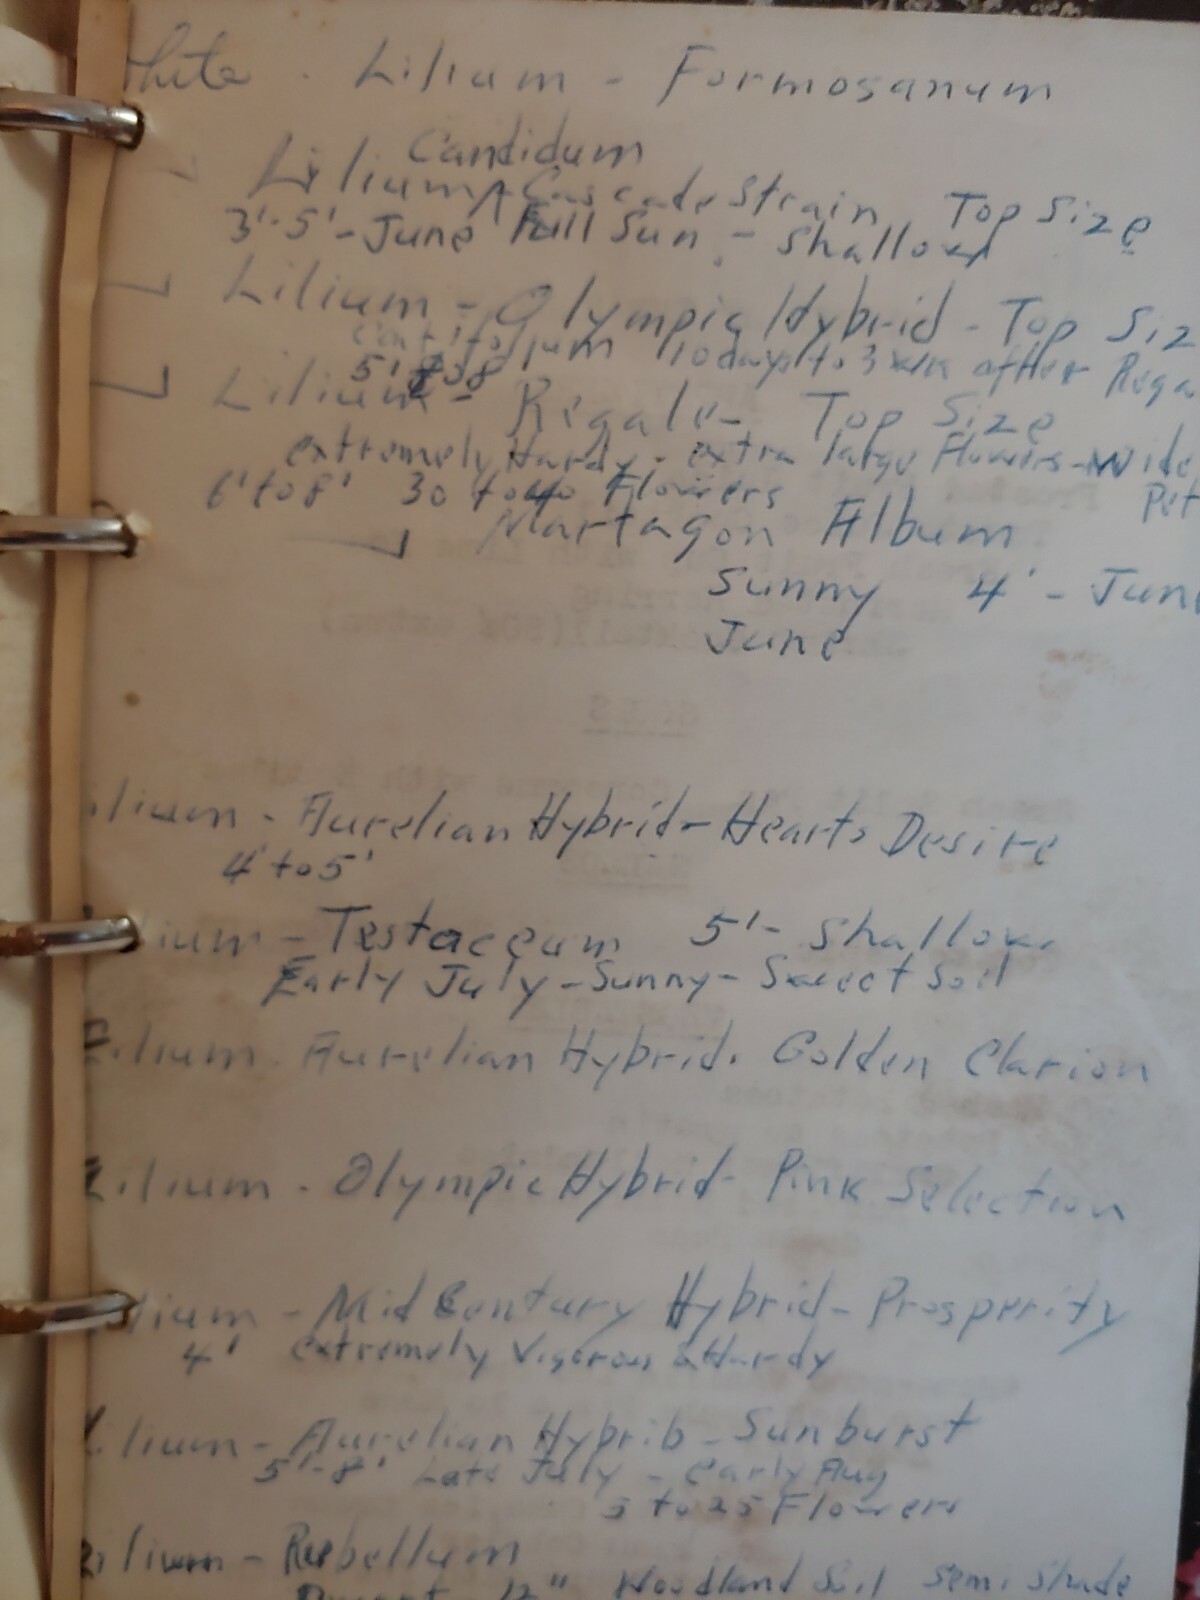 White . Lilium - Formosanum
Candidum
Lilium ^ Cascade Strain Top Size
3'-5' - June Full Sun - Shallow
Lilium - Olympic Hybrid - Top Siz
10 days to 3 wk after Rega
5' to 8'
Lilium - Regale - Top Size
extremely Hardy - extra large Flowers - Wide
6' to 8' 30 to 40 Flowers Pet
Martagon Album
Sunny 4' - June
June
ilium - Aurelian Hybrid - Hearts Desire
4' to 5'
ium - Testaceum 5' - Shallow
Early July - Sunny - Sweet Soil
Lilium . Aurelian Hybrid . Golden Clarion
Lilium . Olympic Hybrid - Pink Selection
lium - Mid Century Hybrid - Prosperity
4' extremely Vigorous & Hardy
Lilium - Aurelian Hybrib - Sunburst
5' - 8' Late July - early Aug
5 to 25 Flowers
Lilium - Rubellum
12" Woodland Soil Semi Shade